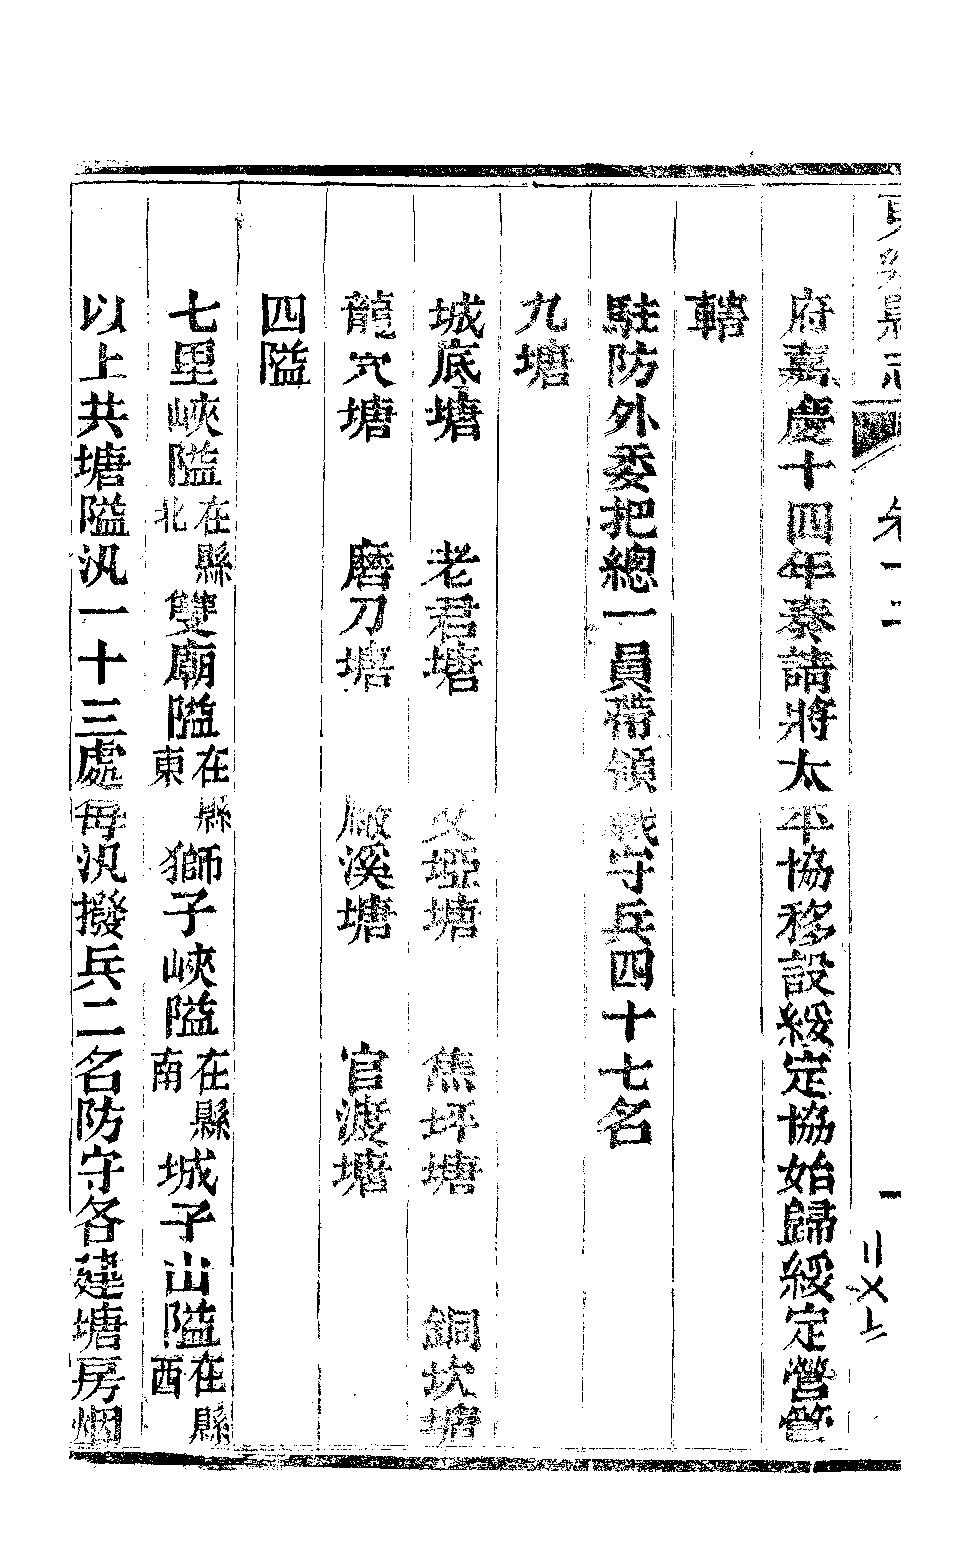 府嘉慶十四年奏請將太平協移設綏定協始歸綏定營管
轄
駐防外委把總一員帶領戰守兵四十七名
九塘
城底塘　老君塘　埡塘　焦坪塘　銅坎塘
龍穴塘　磨刀塘　廠溪塘　官渡塘
四隘
七里峽隘在縣北雙廟隘在縣東獅子峽隘在縣南城子山隘在縣西
以上共塘隘汛一十三處每汛撥兵二名防守各建塘房烟